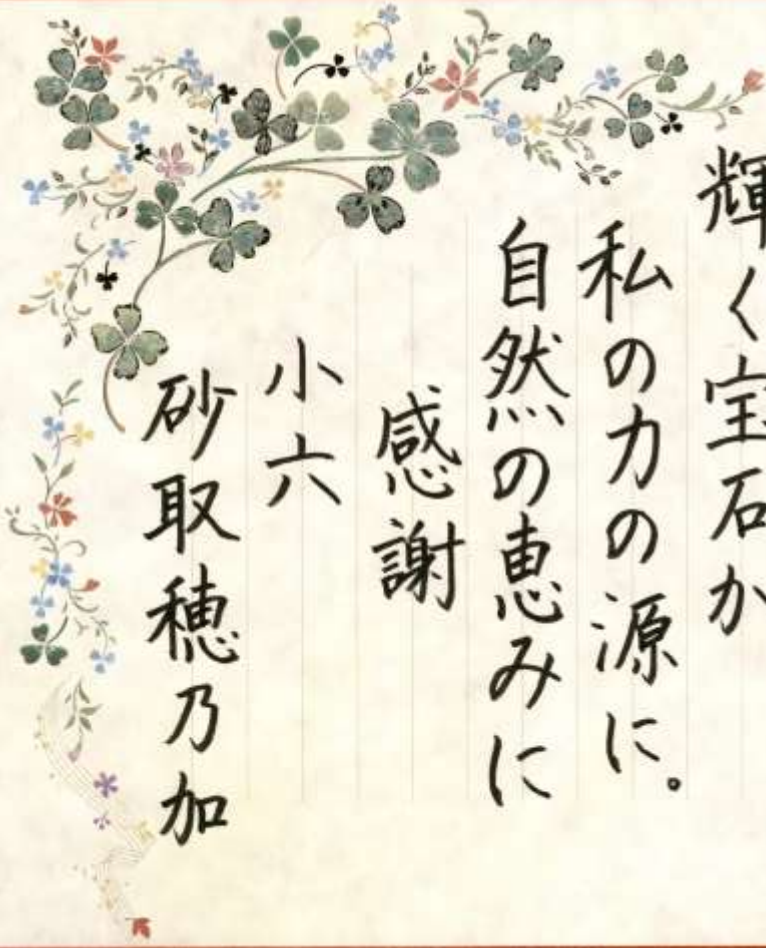 輝く宝石が
私の力の源に。
自然の恵みに
感謝
小六
砂取穂乃加